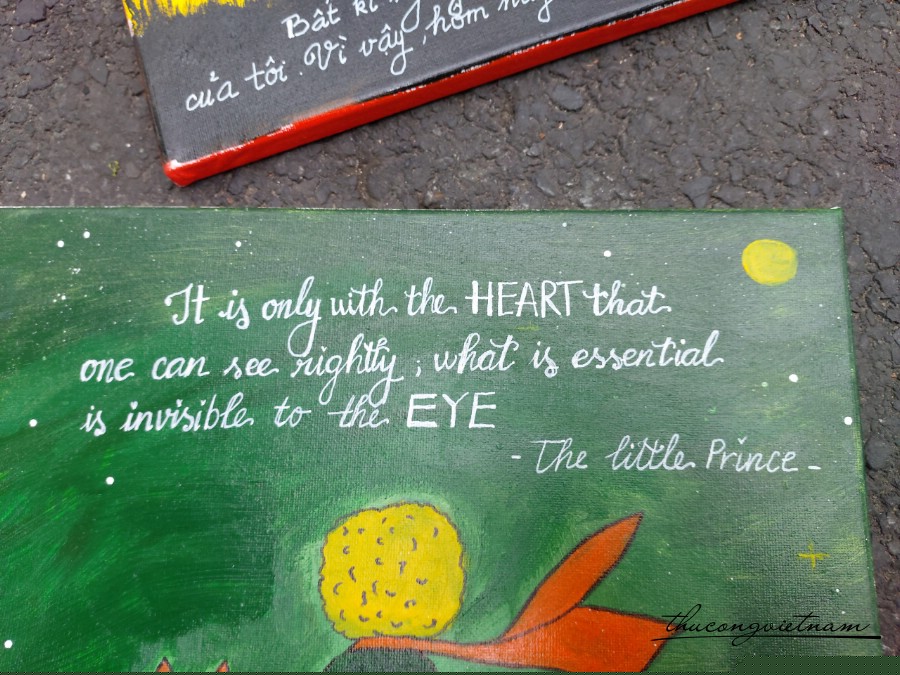 Bất kì
của tôi. Vì vậy, hôm nay
It is only with the HEART that
one can see rightly ; what is essential
is invisible to the EYE
- The little Prince -
thucongvietnam